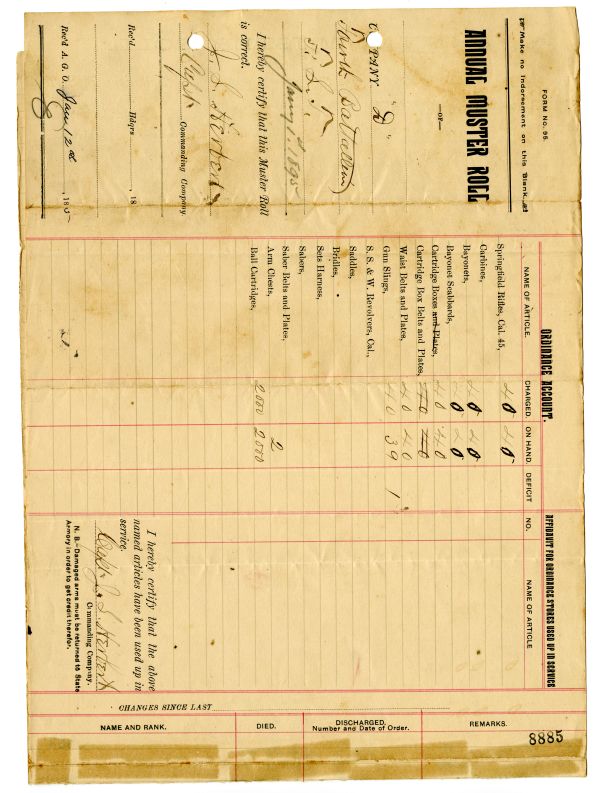 FORM No. 95.
Make no Indorsement on this Blank.
ANNUAL MUSTER ROLL
—OF—
COMPANY "D"
Fourth Battalion
I hereby certify that this Muster Roll
is correct.
J. S. Herbert
Capt Commanding Company.
Rec'd Hdqrs , 18
Rec'd A. G. O. Jany 12th , 1895
ORDNANCE ACCOUNT.
NAME OF ARTICLE. CHARGED. ON HAND. DEFICIT
Springfield Rifles, Cal. 45, 40 40
Carbines,
Bayonets, 40 40
Bayonet Scabbards, 40 40
Cartridge Boxes and Plates, 40 40
Cartridge Box Belts and Plates, 40 40
Waist Belts and Plates, 40 40
Gun Slings, 40 39 1
S. S. & W. Revolvers, Cal.,
Saddles,
Bridles,
Sets Harness,
Sabers,
Saber Belts and Plates,
Arm Chests, 2
Ball Cartridges, 2000 2000
AFFIDAVIT FOR ORDNANCE STORES USED UP IN SERVICE
NO. NAME OF ARTICLE
I hereby certify that the above
named articles have been used up in
service.
Capt J. S. Herbert
Commanding Company.
N. B.—Damaged arms must be returned to State
Armory in order to get credit therefor.
CHANGES SINCE LAST
NAME AND RANK. DIED. DISCHARGED. Number and Date of Order. REMARKS.
8885